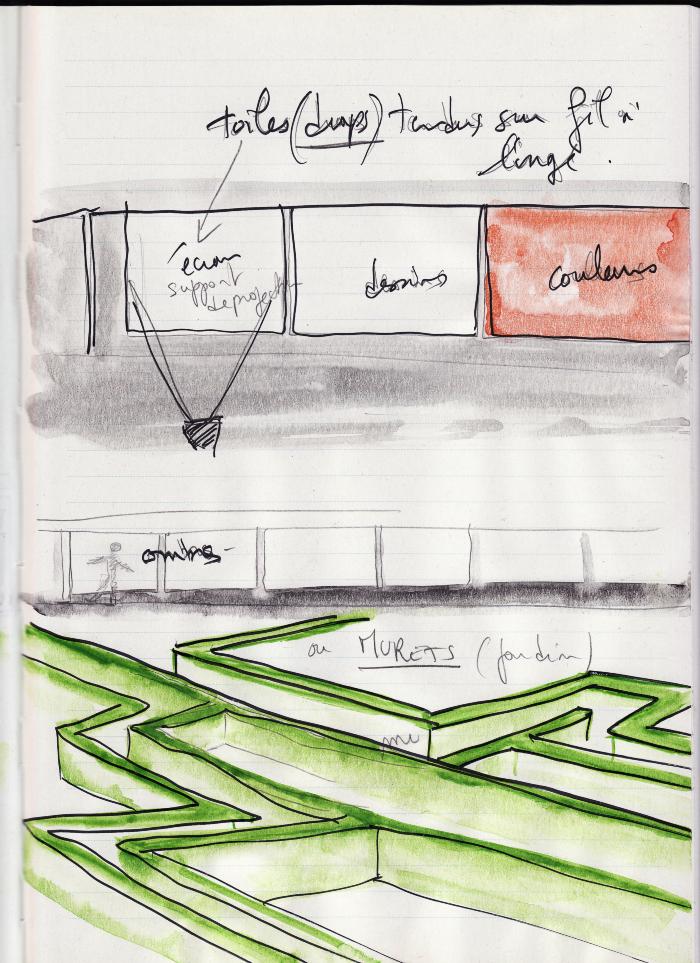 toiles (draps) tendus sur fil à
linge.
écran
support
de project-
dessins
couleurs
ombres
ou MURETS (jardin)